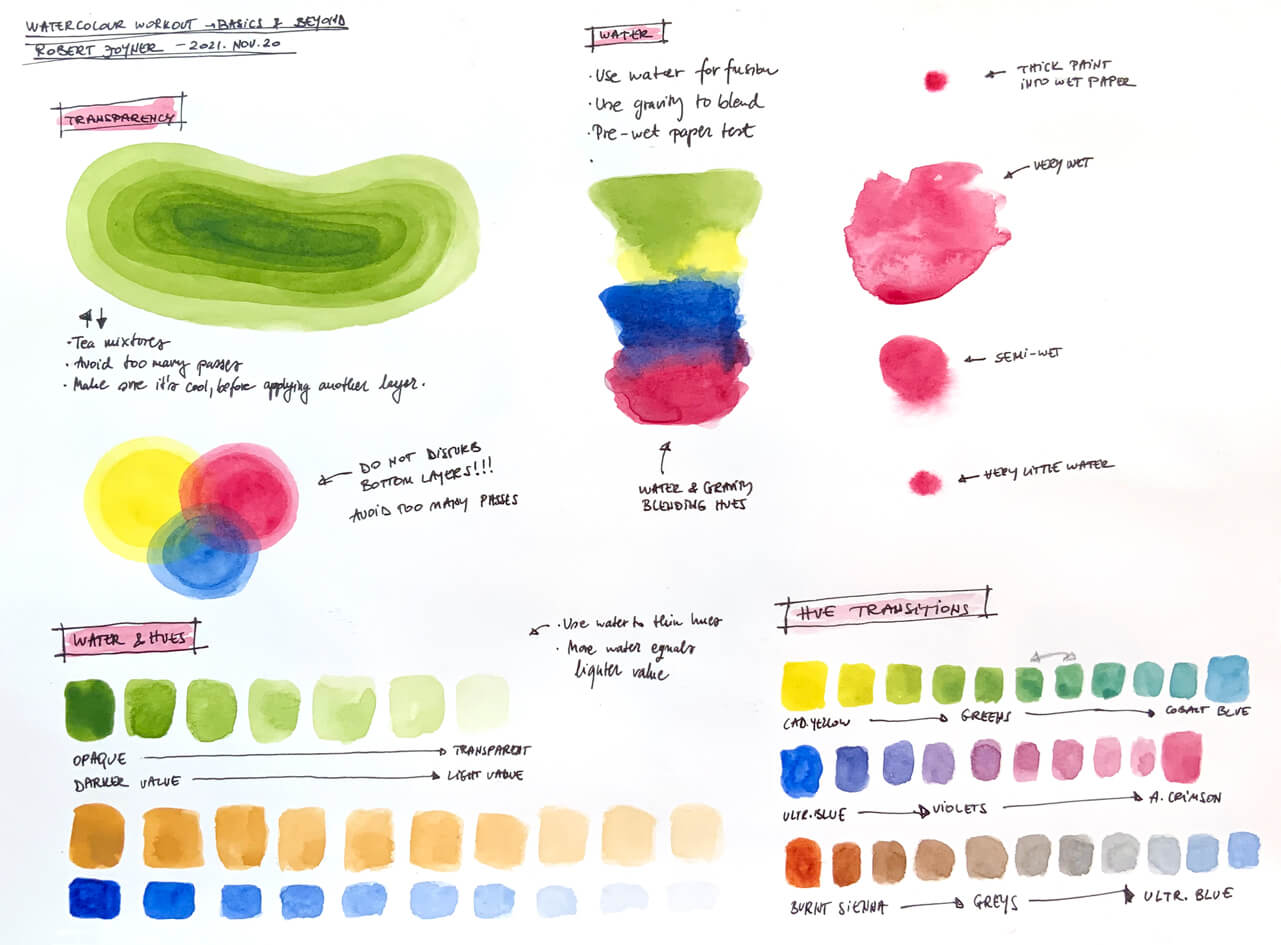 WATERCOLOUR WORKOUT → BASICS & BEYOND
ROBERT JOYNER - 2021. NOV. 20
TRANSPARENCY
· Tea mixtures
· Avoid too many passes
· Make sure it's cool, before applying another layer.
DO NOT DISTURB
BOTTOM LAYERS!!!
AVOID TOO MANY PASSES
WATER
· Use water for fusion
· Use gravity to blend
· Pre-wet paper test
·
WATER & GRAVITY
BLENDING HUES
THICK PAINT
INTO WET PAPER
VERY WET
SEMI-WET
VERY LITTLE WATER
WATER & HUES
· Use water to thin hues
· More water equals
lighter value
OPAQUE → TRANSPARENT
DARKER VALUE → LIGHT VALUE
HUE TRANSITIONS
CAD. YELLOW → GREENS → COBALT BLUE
ULTR. BLUE → VIOLETS → A. CRIMSON
BURNT SIENNA → GREYS → ULTR. BLUE